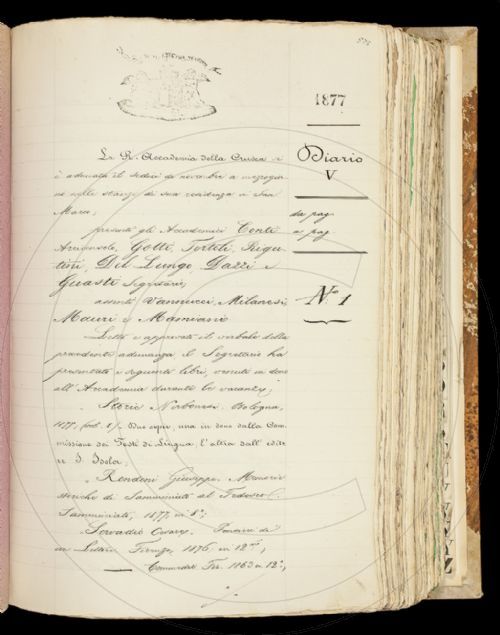 1877
La R. Accademia della Crusca si
è adunata il sedici di novembre a mezzogior
no nelle stanze di sua residenza in San
Marco,
presenti gli Accademici Conti
Arciconsolo, Gotti, Tortoli, Rigu-
tini, Del Lungo, Dazzi e
Guasti Segretario,
assenti Vannucci, Milanesi,
Mauri e Mamiani.
Letto e approvato il verbale della
precedente adunanza il Segretario ha
presentato i seguenti libri, venuti in dono
all'Accademia durante le vacanze;
Storie Nerbonesi. Bologna,
1877, vol. 1º. Due copie, una in dono dalla Com
missione dei Testi di Lingua, l'altra dall'edito
re I. Isola;
Rondoni Giuseppe. Memorie
storiche di Samminiato al Tedesco.
Samminiato, 1877, in 8º;
in Firenze, 1876, in 12º;
1863 in 12º;
Diario
V
da pag
a pag
Nº 1